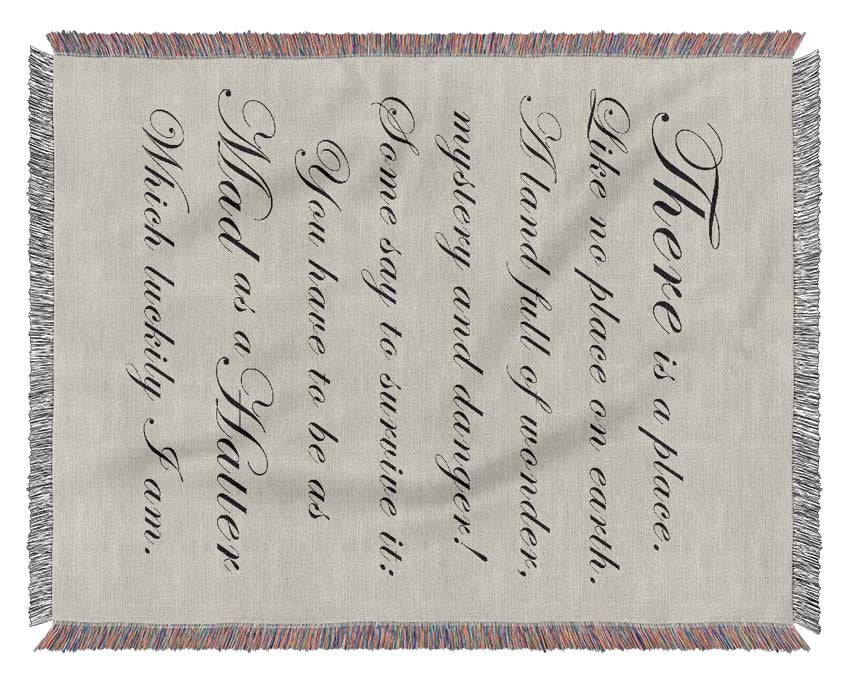 There is a place.
Like no place on earth.
A land full of wonder,
mystery and danger!
Some say to survive it:
You have to be as
Mad as a Hatter
Which luckily I am.